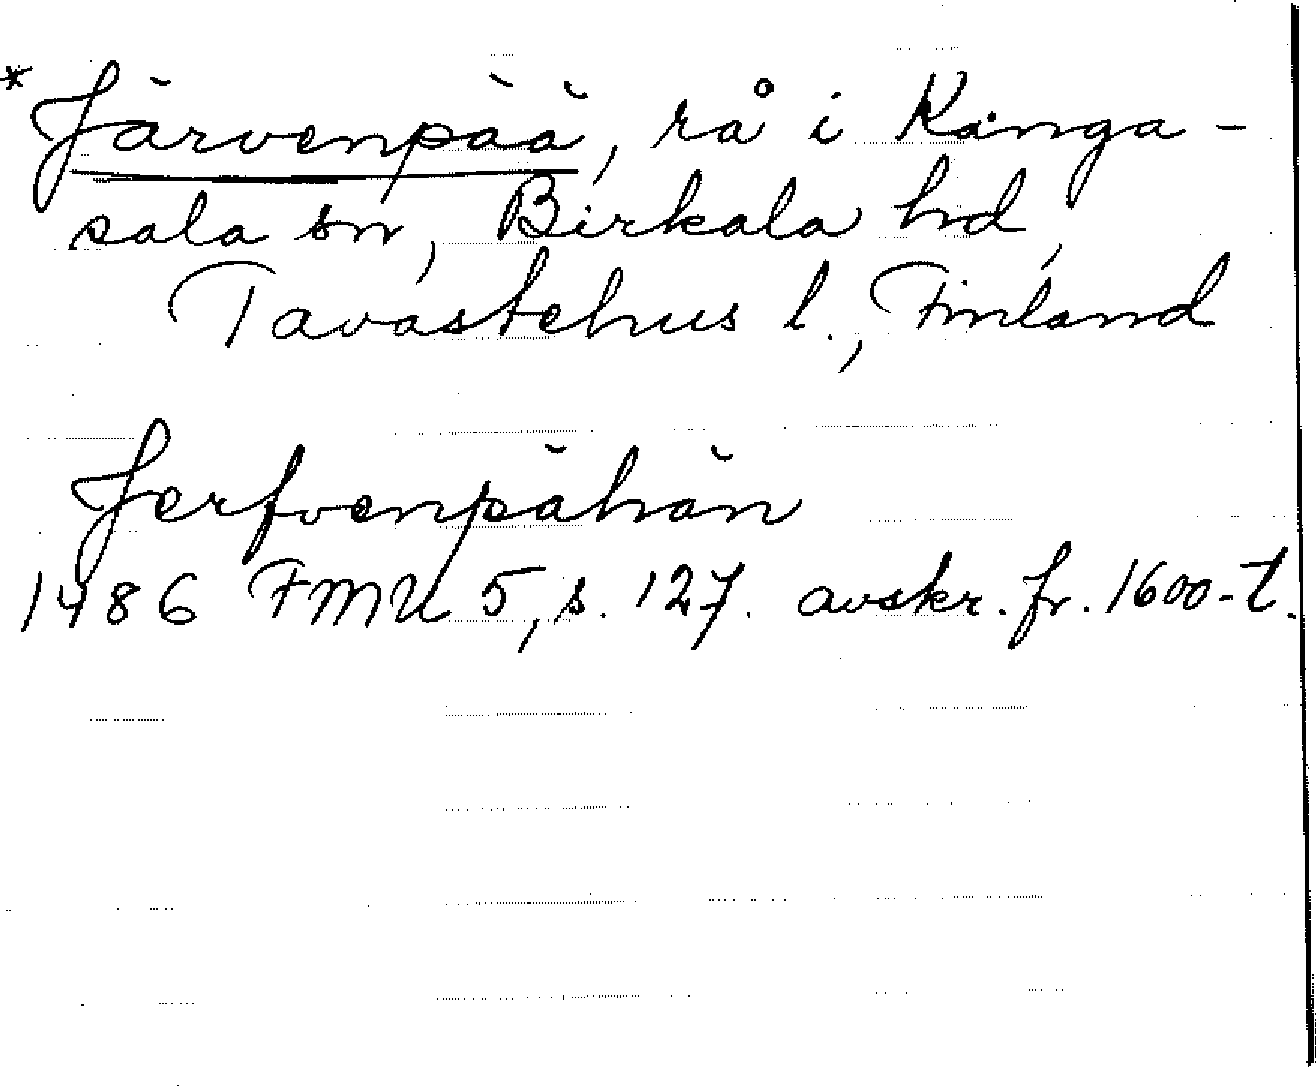 * Järvenpää, rå i Kanga-
sala sn, Birkala hd,
Tavastehus l., Finland
Jerfvenpähän
1486 FMU 5, s. 127. avskr. fr. 1600-t.